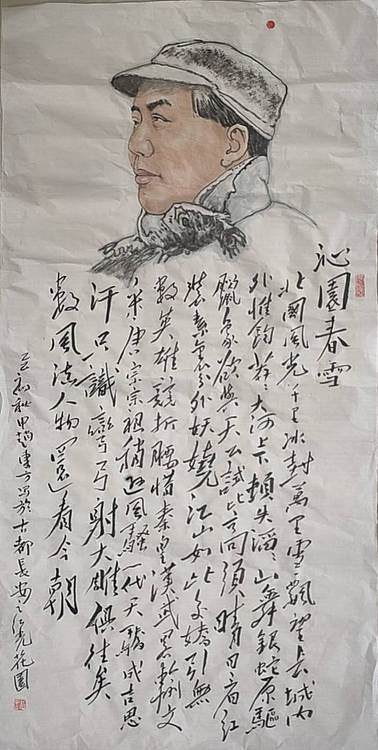 沁園春雪
北國風光千里冰封萬里雪飄望长城内
外惟餘莽莽大河上下頓失滔滔山舞銀蛇原驅
臘象欲與天公試比高須晴日看红
裝素裹分外妖嬈江山如此多嬌引無
數英雄競折腰惜秦皇漢武略輸文
采唐宗宋祖稍遜風騷一代天驕成吉思
汗只識彎弓射大雕俱往矣
數風流人物還看今朝
方写於古都長安之光花園